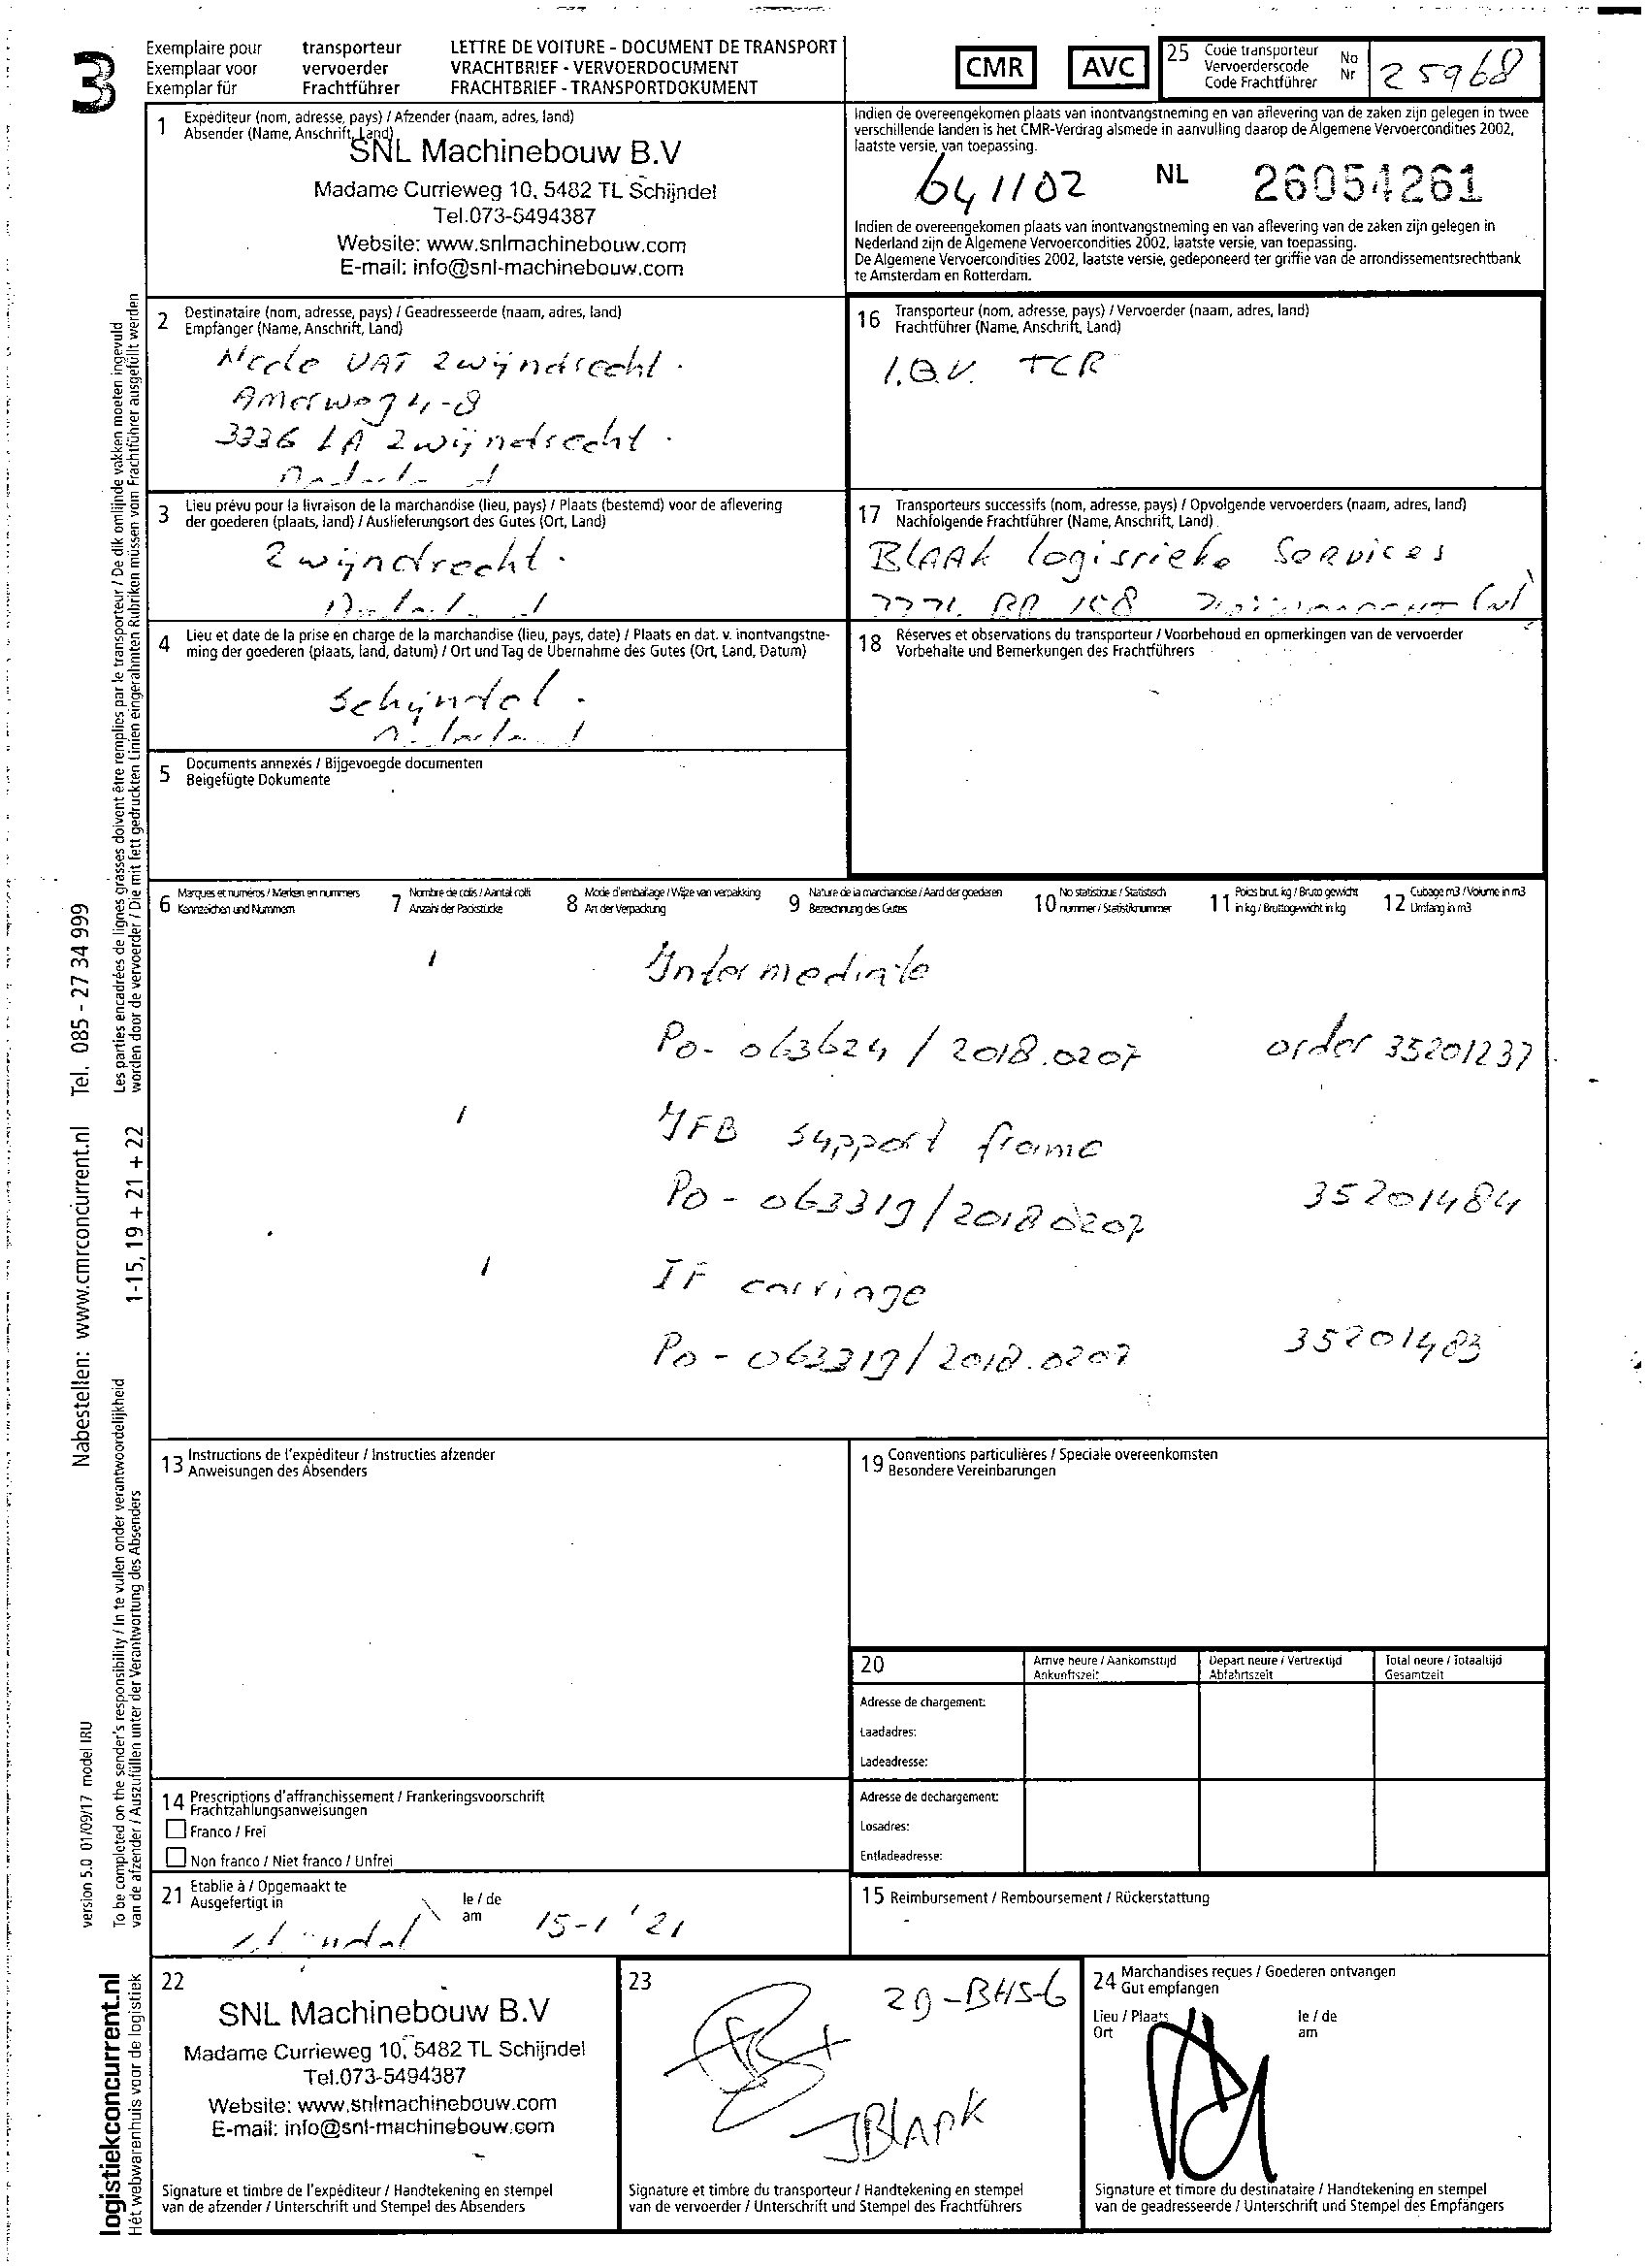 3
Exemplaire pour transporteur LETTRE DE VOITURE - DOCUMENT DE TRANSPORT
Exemplaar voor vervoerder VRACHTBRIEF - VERVOERDOCUMENT
Exemplar für Frachtführer FRACHTBRIEF - TRANSPORTDOKUMENT
CMR AVC
25 Code transporteur No
Vervoerderscode Nr
Code Frachtführer
25968
1 Expéditeur (nom, adresse, pays) / Afzender (naam, adres, land)
Absender (Name, Anschrift, Land)
SNL Machinebouw B.V
Madame Currieweg 10, 5482 TL Schijndel
Tel.073-5494387
Website: www.snlmachinebouw.com
E-mail: info@snl-machinebouw.com
Indien de overeengekomen plaats van inontvangstneming en van aflevering van de zaken zijn gelegen in twee
verschillende landen is het CMR-Verdrag alsmede in aanvulling daarop de Algemene Vervoercondities 2002,
laatste versie, van toepassing.
641102 NL 26054261
Indien de overeengekomen plaats van inontvangstneming en van aflevering van de zaken zijn gelegen in
Nederland zijn de Algemene Vervoercondities 2002, laatste versie, van toepassing.
De Algemene Vervoercondities 2002, laatste versie, gedeponeerd ter griffie van de arrondissementsrechtbank
te Amsterdam en Rotterdam.
2 Destinataire (nom, adresse, pays) / Geadresseerde (naam, adres, land)
Empfänger (Name, Anschrift, Land)
VAT Zwijndrecht.
Amerweg 4-8
3336 LA Zwijndrecht.
16 Transporteur (nom, adresse, pays) / Vervoerder (naam, adres, land)
Frachtführer (Name, Anschrift, Land)
TCR
3 Lieu prévu pour la livraison de la marchandise (lieu, pays) / Plaats (bestemd) voor de aflevering
der goederen (plaats, land) / Auslieferungsort des Gutes (Ort, Land)
Zwijndrecht.
17 Transporteurs successifs (nom, adresse, pays) / Opvolgende vervoerders (naam, adres, land)
Nachfolgende Frachtführer (Name, Anschrift, Land)
BLAAK logistieke Services
4 Lieu et date de la prise en charge de la marchandise (lieu, pays, date) / Plaats en dat. v. inontvangstne-
ming der goederen (plaats, land, datum) / Ort und Tag de Übernahme des Gutes (Ort, Land, Datum)
Schijndel.
18 Réserves et observations du transporteur / Voorbehoud en opmerkingen van de vervoerder
Vorbehalte und Bemerkungen des Frachtführers
5 Documents annexés / Bijgevoegde documenten
Beigefügte Dokumente
6 Marques et numéros / Merken en nummers
Kennzeichen und Nummern
7 Nombre de colis / Aantal colli
Anzahl der Packstücke
8 Mode d'emballage / Wijze van verpakking
Art der Verpackung
9 Nature de la marchandise / Aard der goederen
Bezeichnung des Gutes
10 No statistique / Statistisch
nummer / Statistiknummer
11 Poids brut, kg / Bruto gewicht
in kg / Bruttogewicht in kg
12 Cubage m3 / Volume in m3
Umfang in m3
1 Intermediate
Po- 063624 / 2018.0207 order 35201237
1 IFB support frame
Po - 063319/2018 0207 35201484
1 IF carriage
Po - 063319/2018.0207 35201483
13 Instructions de l'expéditeur / Instructies afzender
Anweisungen des Absenders
19 Conventions particulières / Speciale overeenkomsten
Besondere Vereinbarungen
20 Arrive heure / Aankomsttijd Depart heure / Vertrektijd Total heure / Totaaltijd
Ankunftszeit Abfahrtszeit Gesamtzeit
Adresse de chargement:
Laadadres:
Ladeadresse:
Adresse de dechargement:
Losadres:
Entladeadresse:
14 Prescriptions d'affranchissement / Frankeringsvoorschrift
Frachtzahlungsanweisungen
Franco / Frei
Non franco / Niet franco / Unfrei
21 Etablie à / Opgemaakt te le / de
Ausgefertigt in am
15-1 '21
15 Reimbursement / Remboursement / Rückerstattung
22
SNL Machinebouw B.V
Madame Currieweg 10, 5482 TL Schijndel
Tel.073-5494387
Website: www.snlmachinebouw.com
E-mail: info@snl-machinebouw.com
Signature et timbre de l'expéditeur / Handtekening en stempel
van de afzender / Unterschrift und Stempel des Absenders
23
29-BHS-6
JBLAAK
Signature et timbre du transporteur / Handtekening en stempel
van de vervoerder / Unterschrift und Stempel des Frachtführers
24 Marchandises reçues / Goederen ontvangen
Gut empfangen
Lieu / Plaats le / de
Ort am
Signature et timbre du destinataire / Handtekening en stempel
van de geadresseerde / Unterschrift und Stempel des Empfängers
Les parties encadrées de lignes grasses doivent être remplies par le transporteur / De dik omlijnde vakken moeten ingevuld
worden door de vervoerder / Die mit fett gedruckten Linien eingerahmten Rubriken müssen vom Frachtführer ausgefüllt werden
Nabestellen: www.cmrconcurrent.nl Tel. 085 - 27 34 999
1-15, 19 + 21 + 22
To be completed on the sender's responsibility / In te vullen onder verantwoordelijkheid
van de afzender / Auszufüllen unter der Verantwortung des Absenders
version 5.0 01/09/17 model IRU
logistiekconcurrent.nl
Hét webwarenhuis voor de logistiek